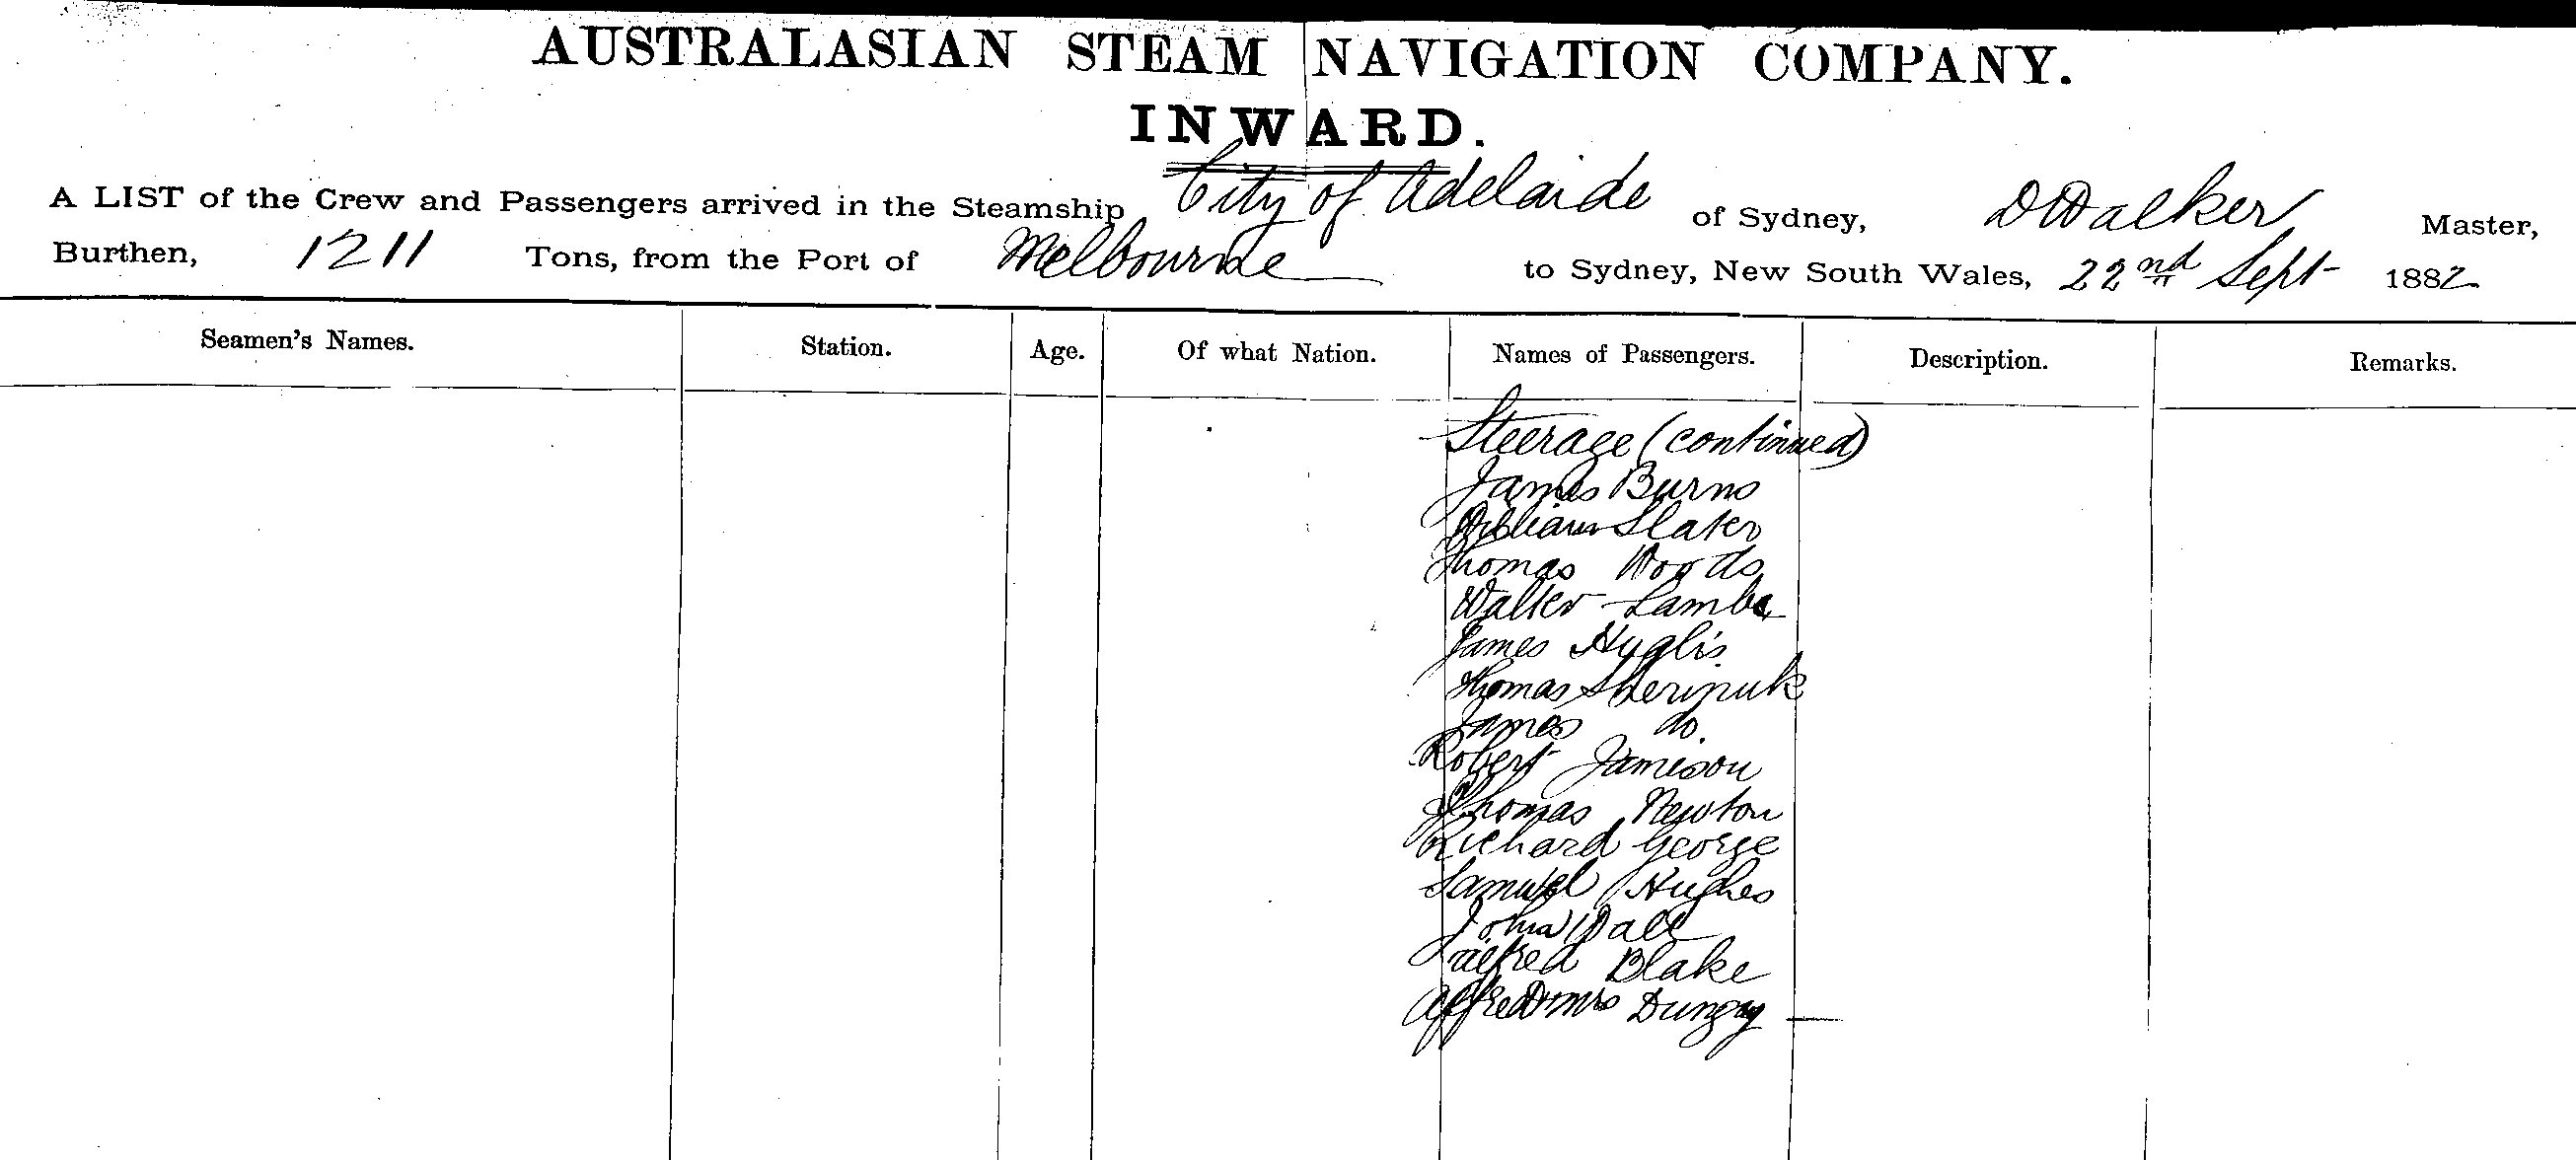 AUSTRALASIAN STEAM NAVIGATION COMPANY.
INWARD.
A LIST of the Crew and Passengers arrived in the Steamship City of Adelaide of Sydney, D Walker Master,
Burthen, 1211 Tons, from the Port of Melbourne to Sydney, New South Wales, 22nd Sept 1882
Seamen's Names. Station. Age. Of what Nation. Names of Passengers. Description. Remarks.
Steerage (continued)
James Burns
William Slater
Thomas Woods
Walter Lamb
James
Thomas
James do.
Robert Jameson
Thomas Newton
Richard George
Samuel Hughes
John
Alfred Blake
Alfred Mrs